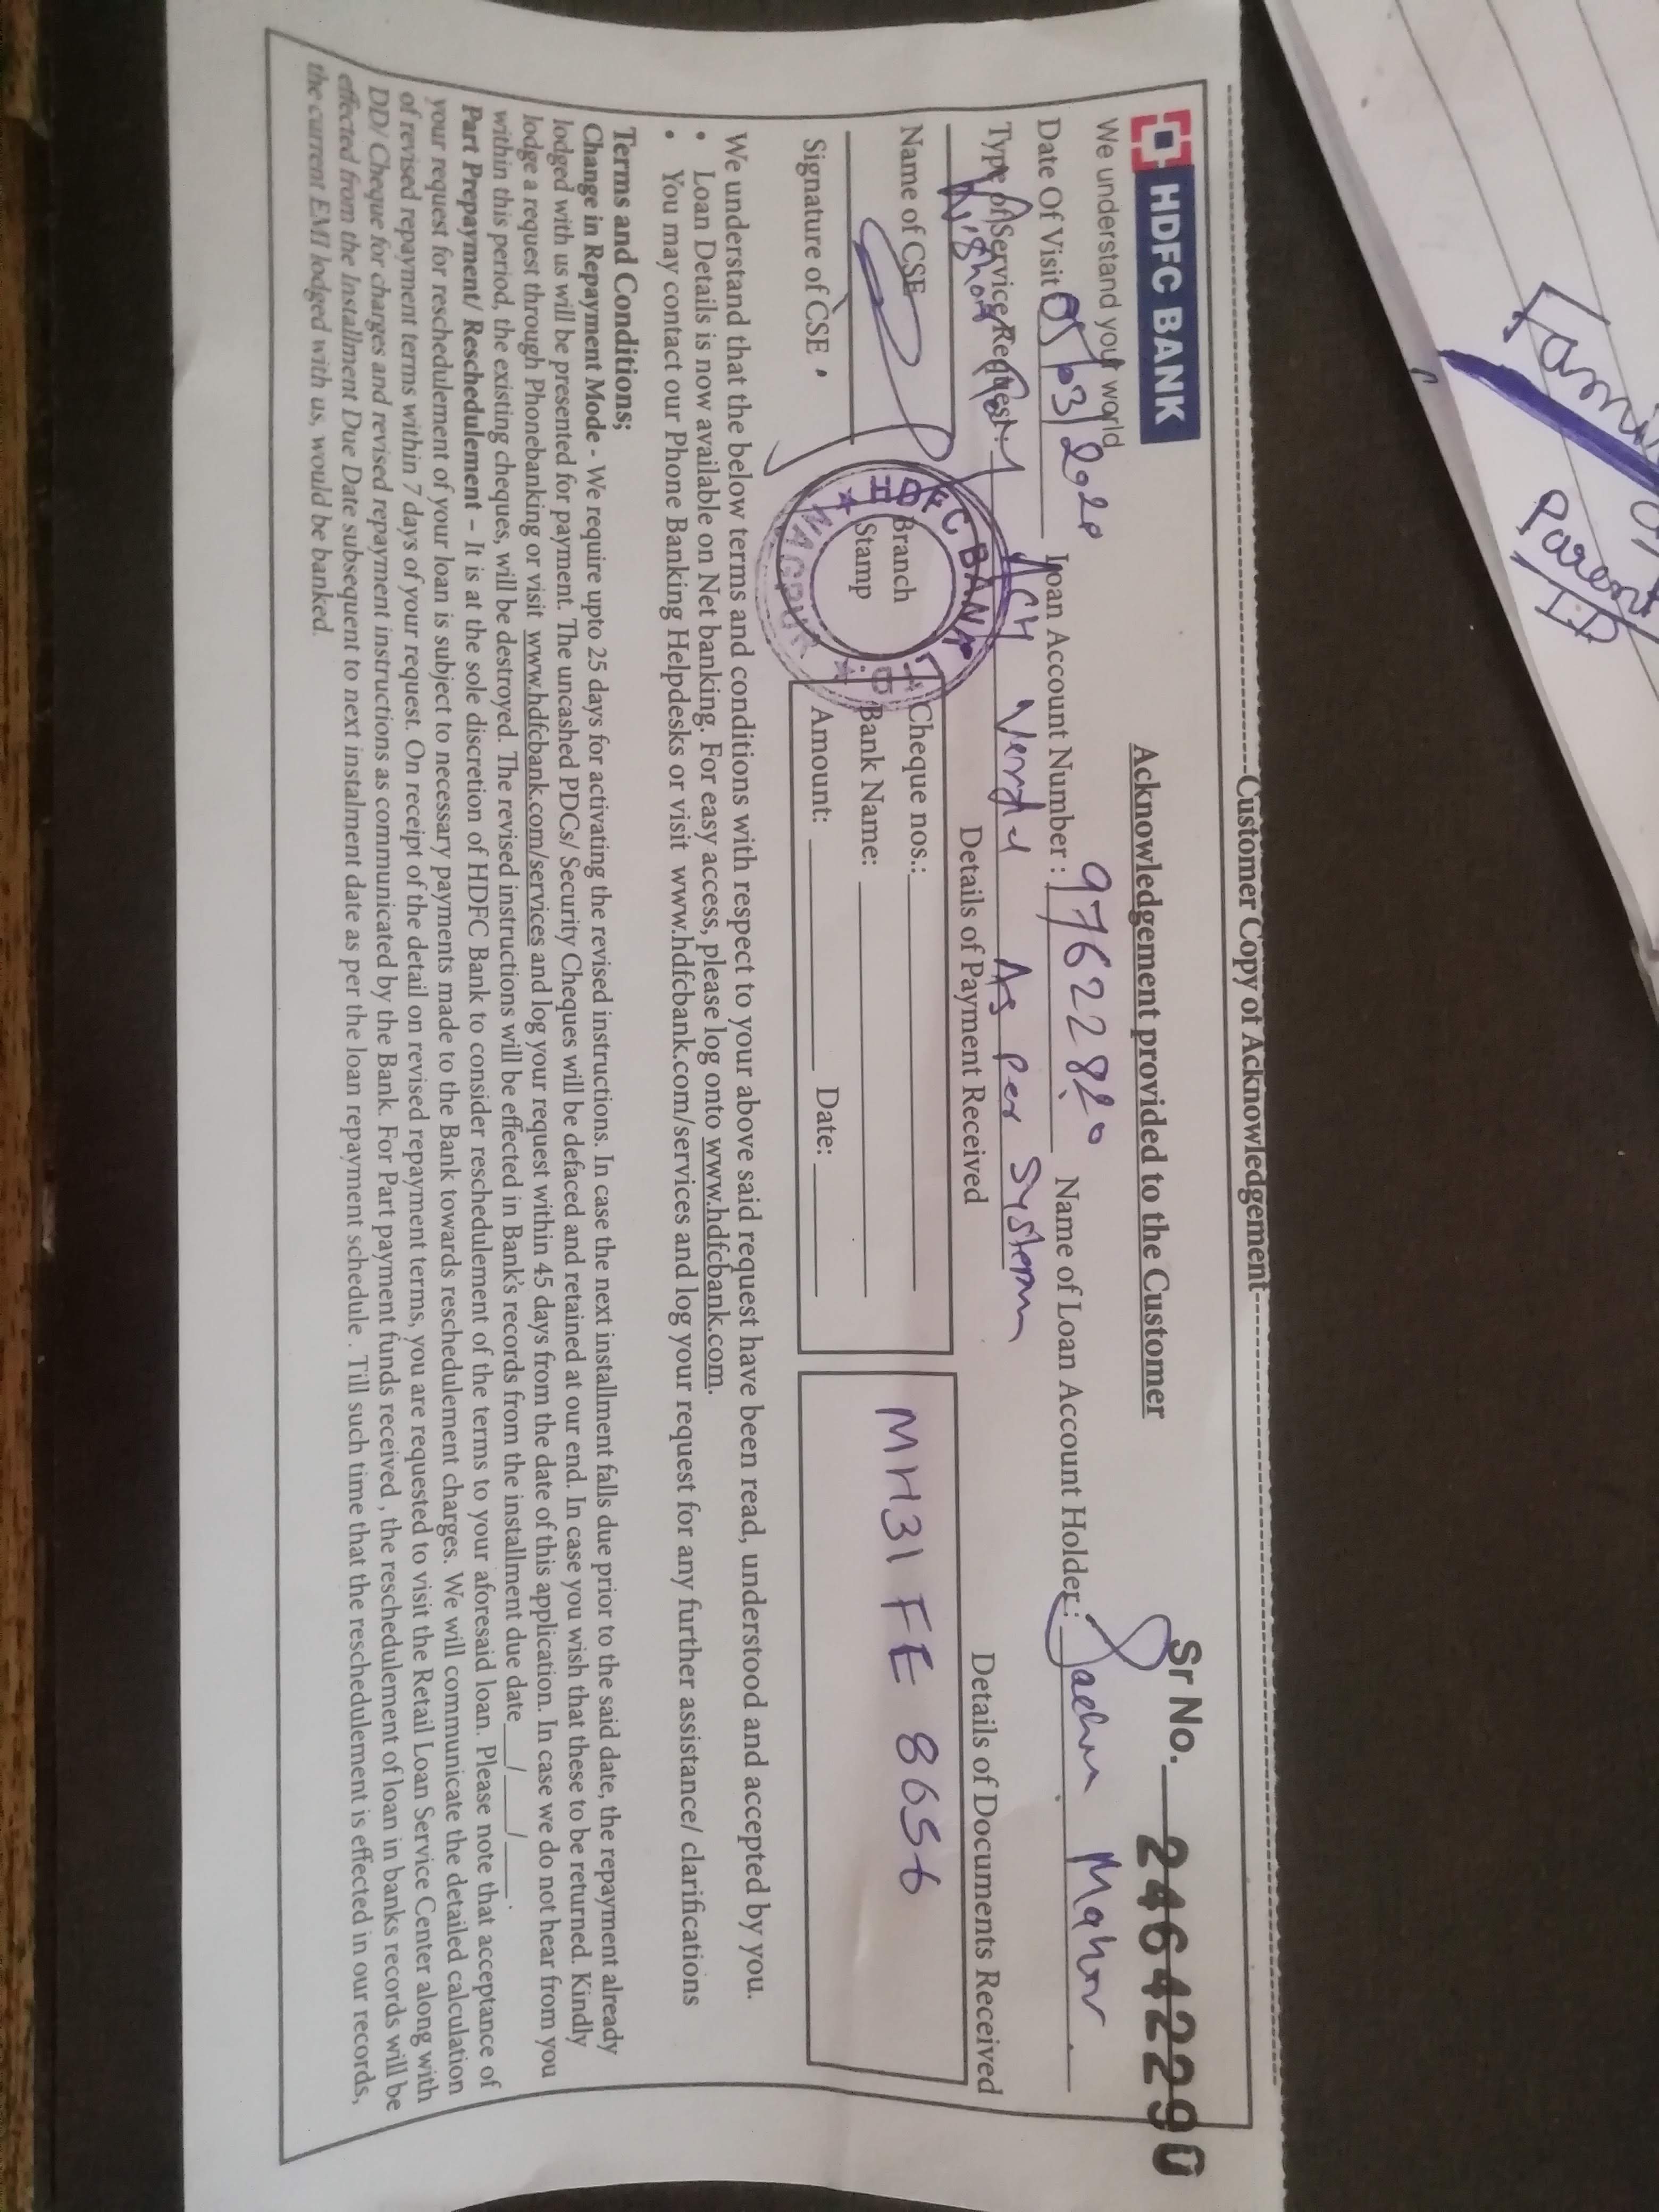 Customer Copy of Acknowledgement
HDFC BANK
We understand your world
Acknowledgement provided to the Customer
Sr No. 24642290
Date Of Visit 05/03/2020 Loan Account Number : Name of Loan Account Holder: Mahor
Type of Service Request: ACH As Per System
Name of CSE
Signature of CSE
HDFC BANK LTD.
NAGPUR
Branch
Stamp
Details of Payment Received
Cheque nos.:
Bank Name:
Amount: Date:
Details of Documents Received
MH31 FE 8656
We understand that the below terms and conditions with respect to your above said request have been read, understood and accepted by you.
• Loan Details is now available on Net banking. For easy access, please log onto www.hdfcbank.com.
• You may contact our Phone Banking Helpdesks or visit www.hdfcbank.com/services and log your request for any further assistance/ clarifications
Terms and Conditions;
Change in Repayment Mode - We require upto 25 days for activating the revised instructions. In case the next installment falls due prior to the said date, the repayment already
lodged with us will be presented for payment. The uncashed PDCs/ Security Cheques will be defaced and retained at our end. In case you wish that these to be returned. Kindly
lodge a request through Phonebanking or visit www.hdfcbank.com/services and log your request within 45 days from the date of this application. In case we do not hear from you
within this period, the existing cheques, will be destroyed. The revised instructions will be effected in Bank's records from the installment due date___/___/___.
Part Prepayment/ Reschedulement – It is at the sole discretion of HDFC Bank to consider reschedulement of the terms to your aforesaid loan. Please note that acceptance of
your request for reschedulement of your loan is subject to necessary payments made to the Bank towards reschedulement charges. We will communicate the detailed calculation
of revised repayment terms within 7 days of your request. On receipt of the detail on revised repayment terms, you are requested to visit the Retail Loan Service Center along with
DD/ Cheque for charges and revised repayment instructions as communicated by the Bank. For Part payment funds received , the reschedulement of loan in banks records will be
effected from the Installment Due Date subsequent to next instalment date as per the loan repayment schedule . Till such time that the reschedulement is effected in our records,
the current EMI lodged with us, would be banked.
Parent